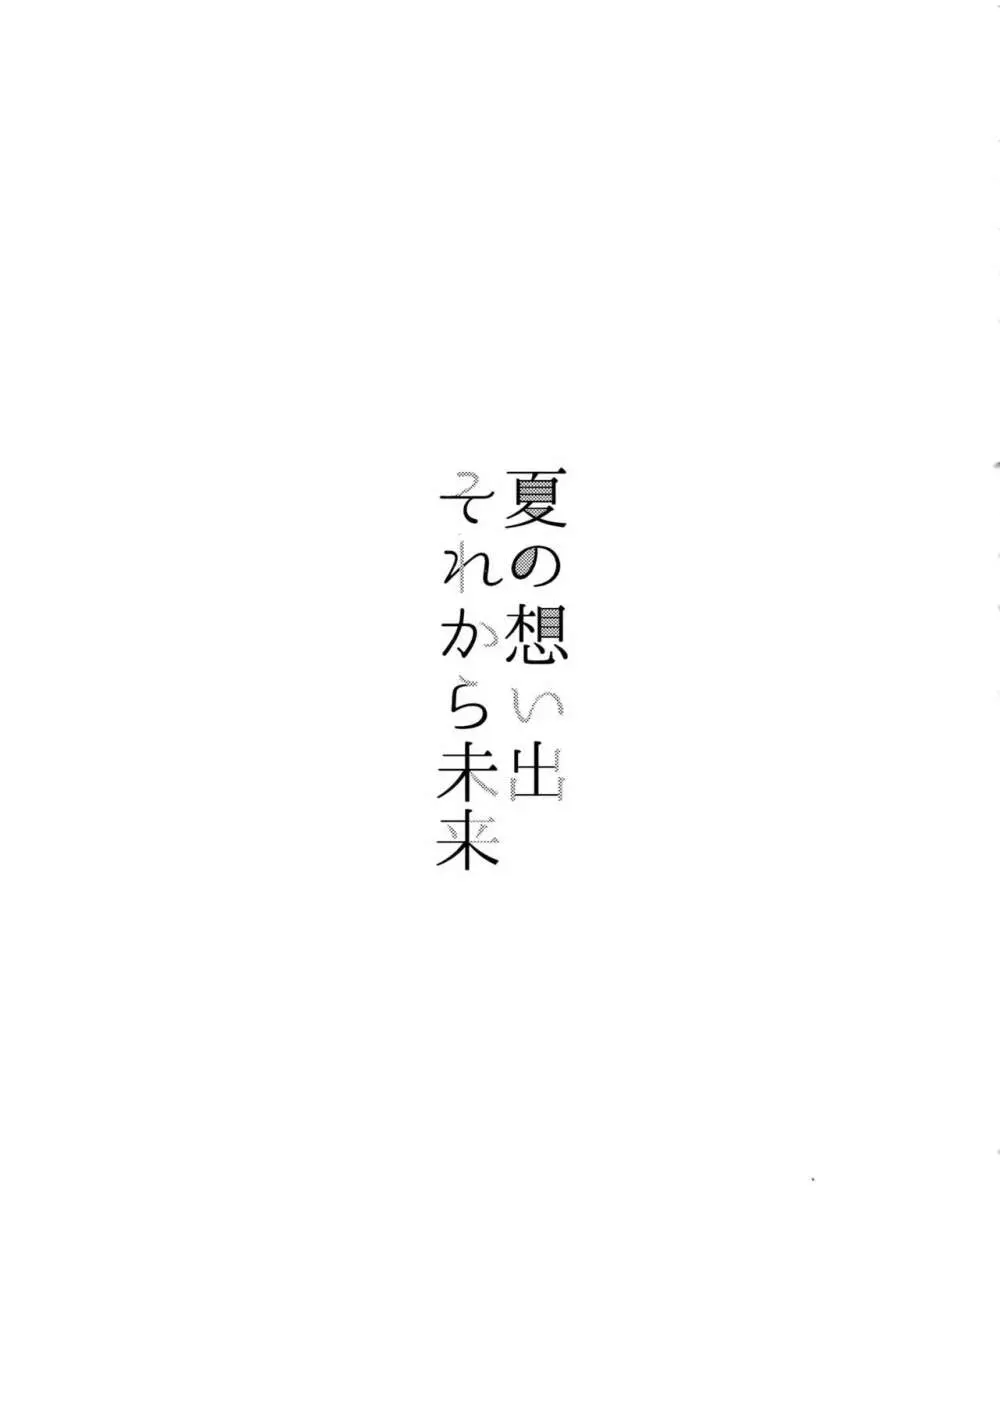 夏の想い出
それから未来